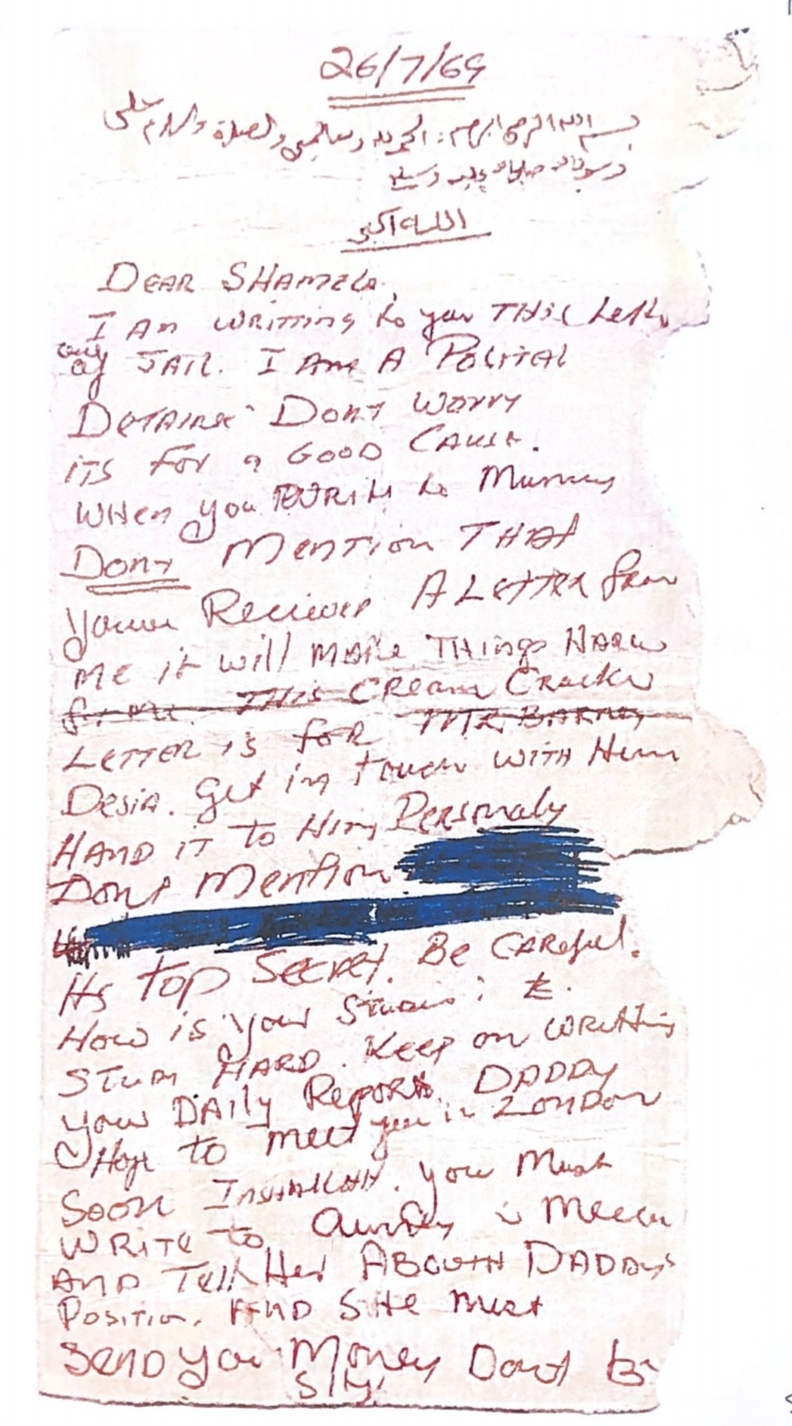 26/7/69
بسم الله الرحمن الرحيم: الحمد لله رب العالمين والصلاة والسلام على
رسول الله صلى الله عليه وسلم
الله اكبر
DEAR SHAMELA,
I AM WRITTING to you THIS Lette
out of JAIL. I AM A POLITAL
DETAINE DONT WORRY
ITS FOR A GOOD CAUSE.
WHEN you WRITE to Mummy
DONT MENTION THAT
you RECIEVED A LETTER from
ME it will MAKE THINGS HARD
for me. THIS CREAM CRACKER
LETTER IS FOR MR. BARNEY
DESIA. Get in touch WITH Him
HAND IT TO Him Personaly
Dont Mention
Its TOP SECRET. BE CAREFUL.
HOW IS your Studies?
STUDY HARD. KEEP on WRITTING
your DAILY REPORTS. DADDY
Hope to meet you in LONDON
SOON INSHALLAH. you Must
WRITE TO Auntey in Mecca
AND Tell Her ABOUTH DADDYS
POSITION. AND SHE Must
SEND you Money Dont be
SHY.